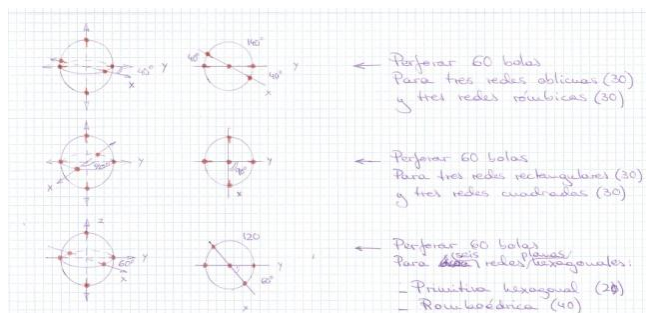 Y
40°
X
140°
40°
Y
40°
X
← Perforar 60 bolas
Para tres redes oblicuas (30)
y tres redes rómbicas (30)
Y
90°
X
Y
90°
X
← Perforar 60 bolas
Para tres redes rectangulares (30)
y tres redes cuadradas (30)
Z
Y
60°
X
120
Y
60°
X
← Perforar 60 bolas
Para seis redes planas hexagonales:
- Primitiva hexagonal (20)
- Romboédrica (40)